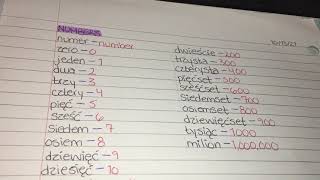 NUMBERS
numer - number
zero - 0
jeden - 1
dwa - 2
trzy - 3
cztery - 4
pięć - 5
sześć - 6
siedem - 7
osiem - 8
dziewięć - 9
dziesięć - 10
dwieście - 200
trzysta - 300
czterysta - 400
pięćset - 500
sześćset - 600
siedemset - 700
osiemset - 800
dziewięćset - 900
tysiąc - 1000
milion - 1,000,000